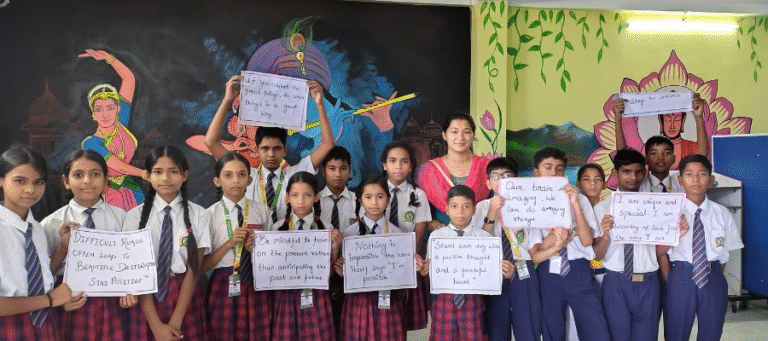 If you cannot do
great things, do small
things in a great
way.
DIFFICULT ROADS
OFTEN LEAD TO
BEAUTIFUL DESTINATIONS
STAY POSITIVE!
Be mindful to focus
on the present rather
than anticipating the
past and future
Nothing is
impossible. The word
itself says "I'm
possible"
Start each day with
a positive thought
and a grateful
heart.
Our brain is amazing. We
can do amazing
things
I am unique and
special. I am
loved for
the way I am
Stay